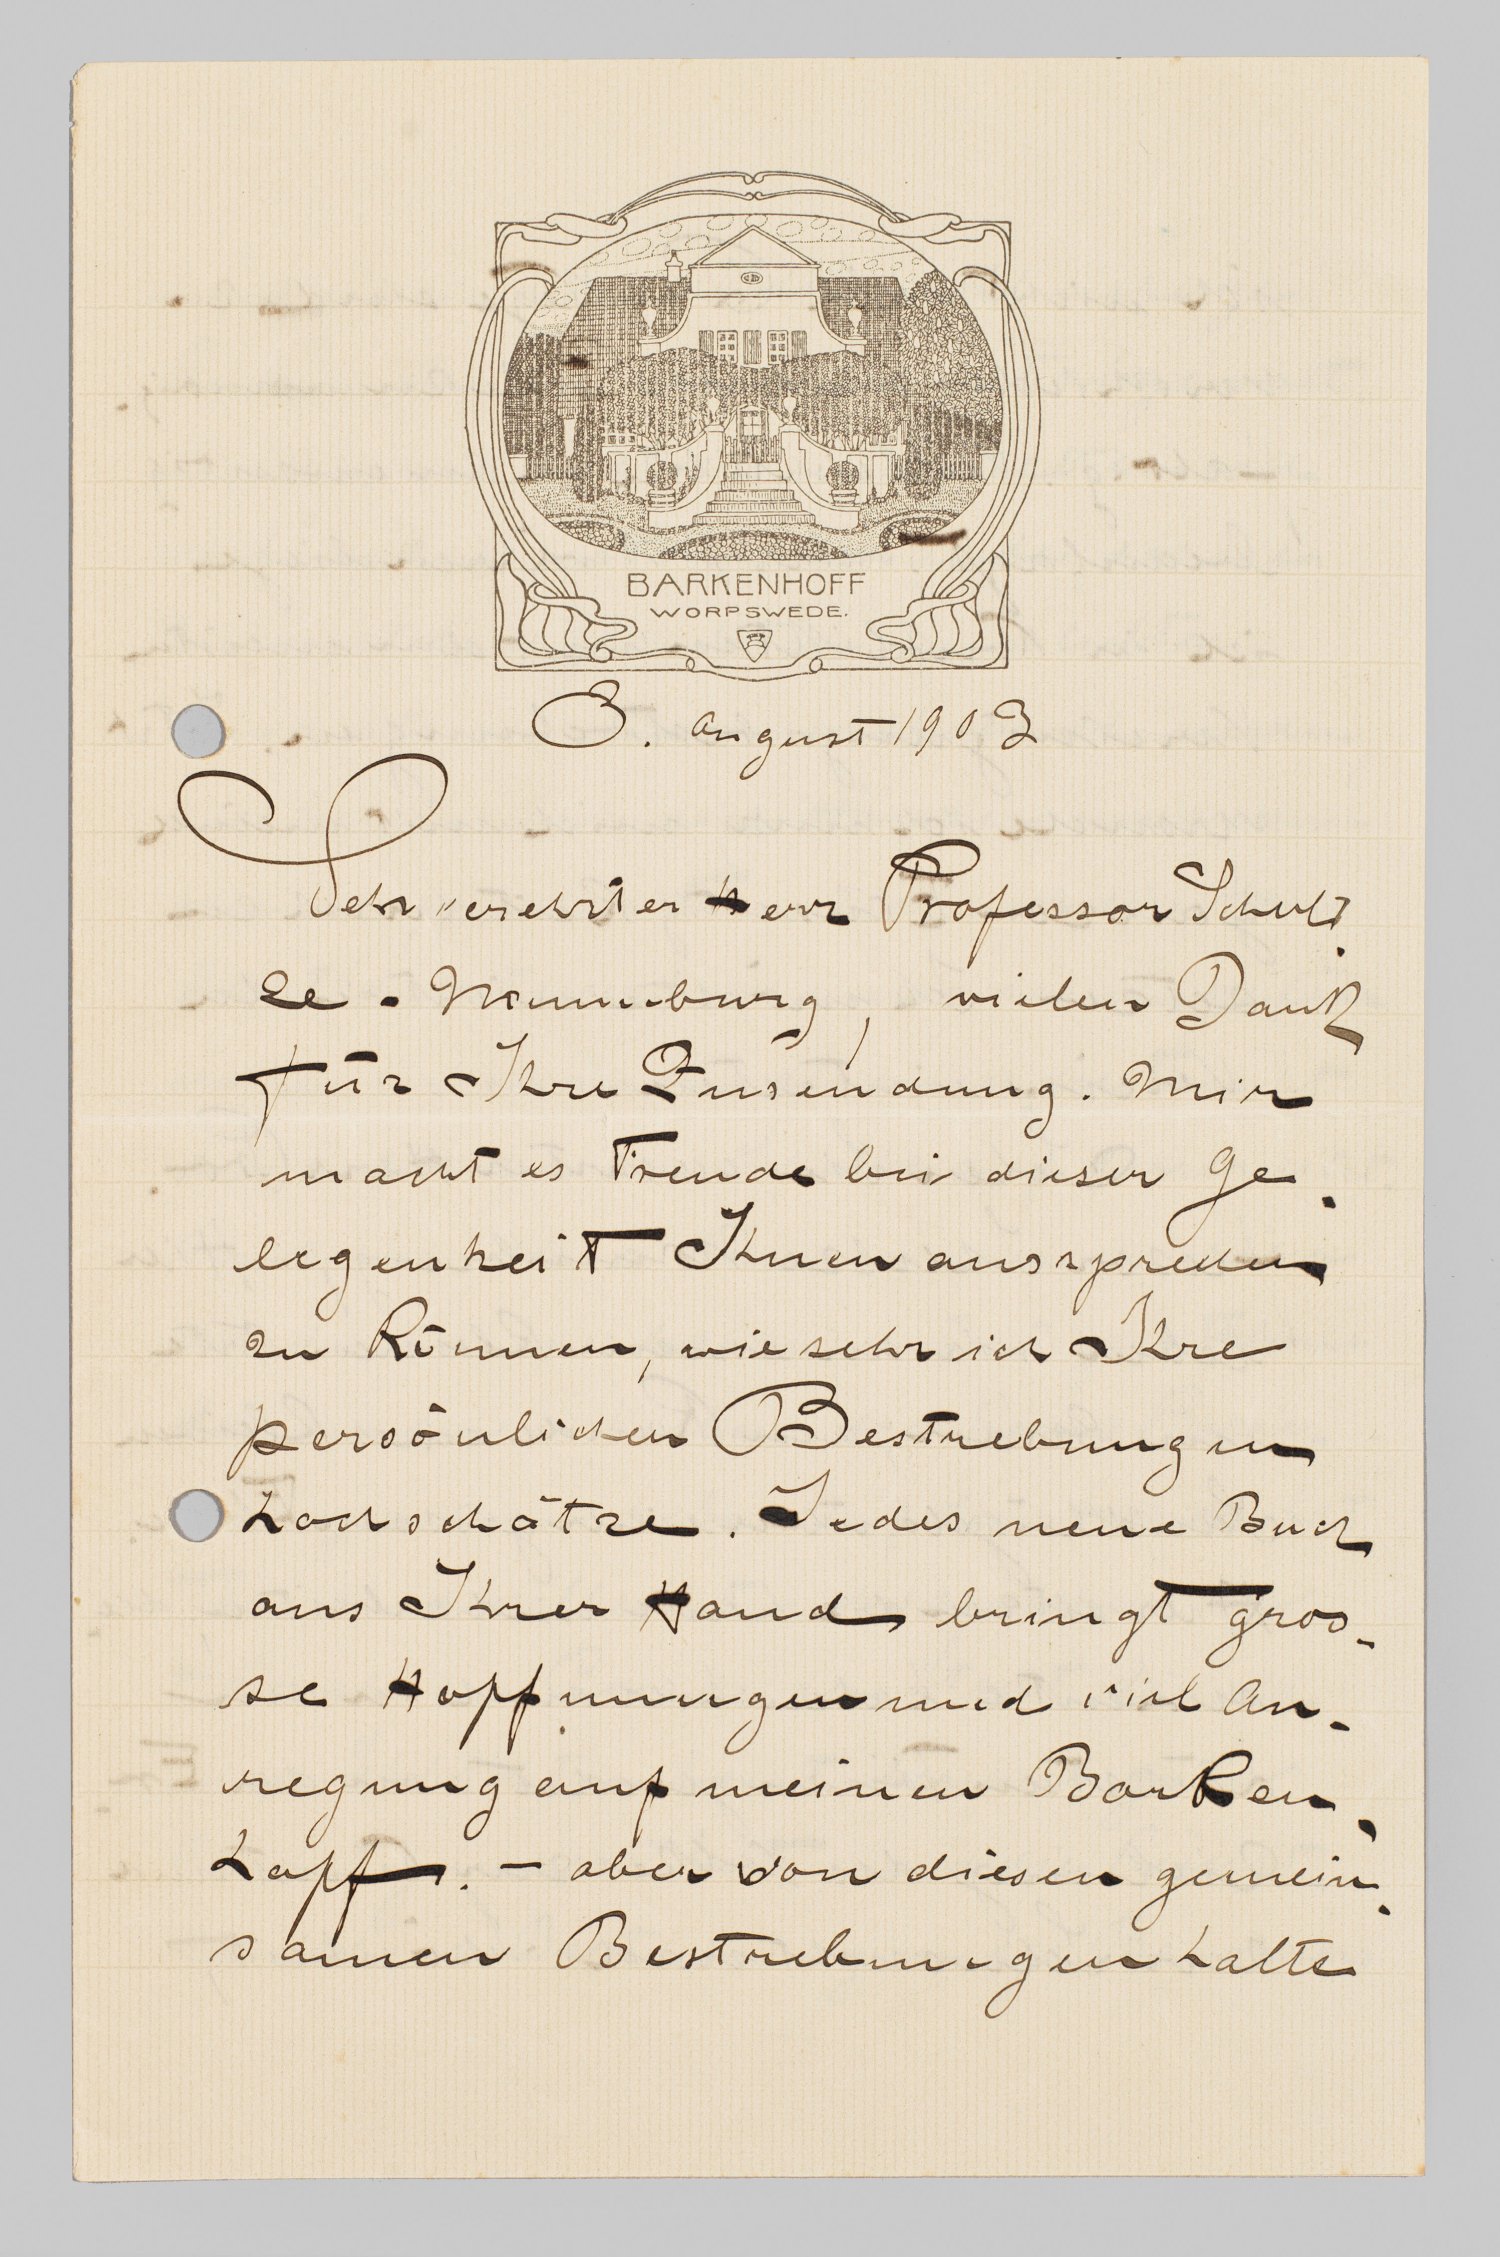 BARKENHOFF
WORPSWEDE.
3. August 1903
Sehr verehrter Herr Professor Schult-
ze-Naumburg, vielen Dank
für Ihre Zusendung. Mir
macht es Freude bei dieser Ge-
legenheit Ihnen aussprechen
zu können, wie sehr ich Ihre
persönlichen Bestrebungen
hochschätze. Jedes neue Buch
aus Ihrer Hand bringt gros-
se Hoffnungen und viel An-
regung auf meinen Barken-
hoff. – aber von diesen gemein-
samen Bestrebungen halte